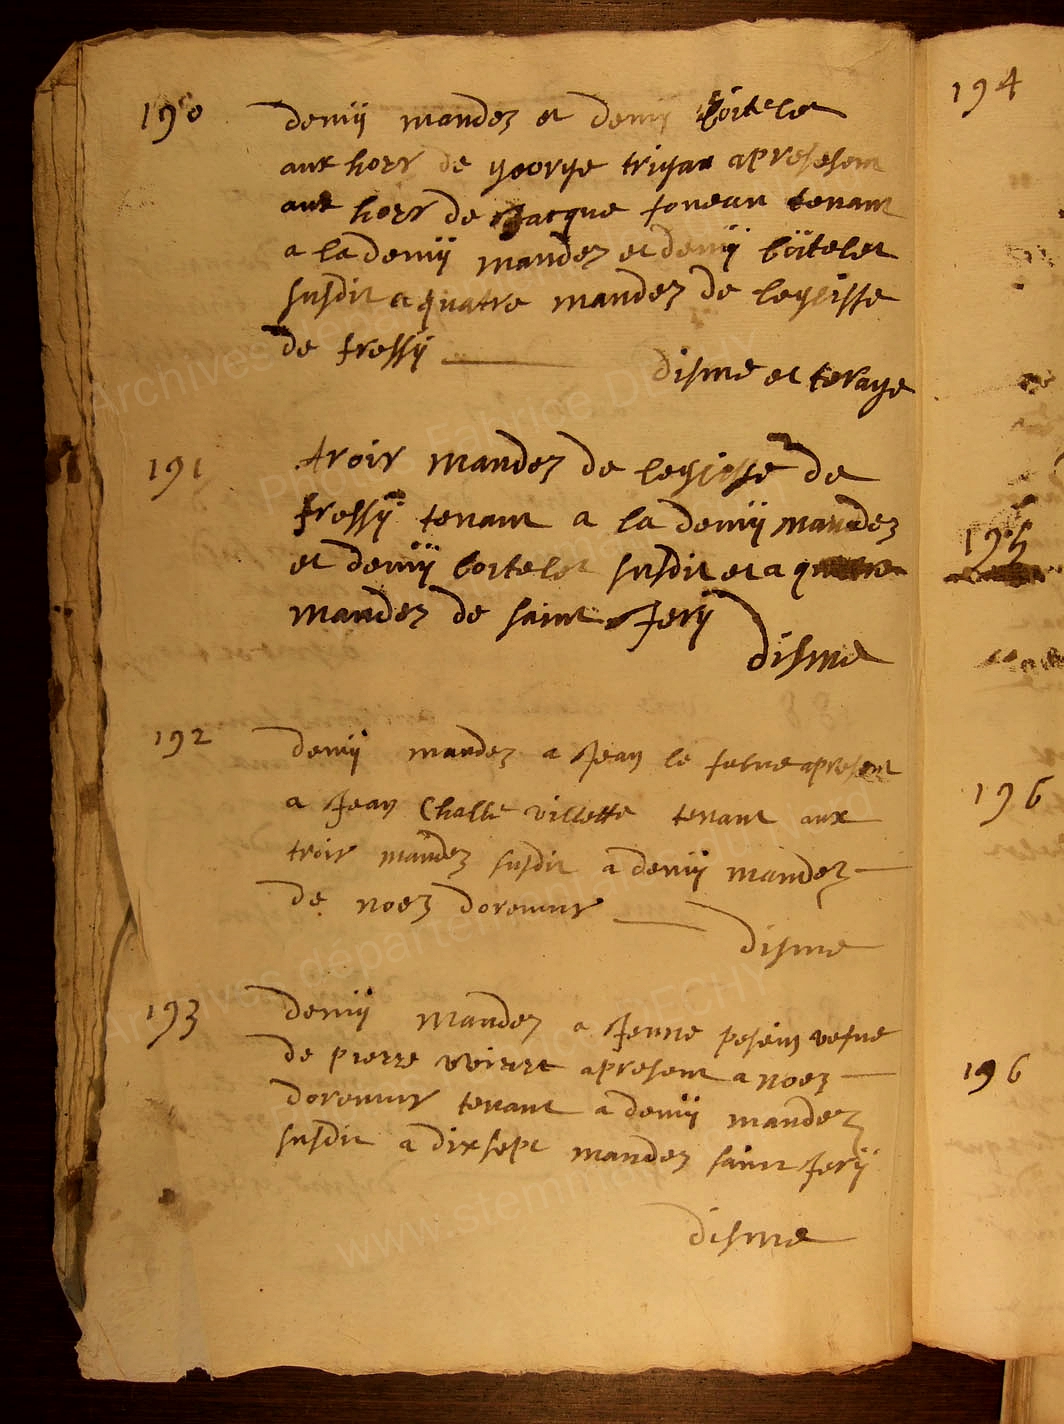 190 demij mandez et demij boitelet
aux hoirs de george trigau apresesent
aux hoirs de Jacque foneau tenant
a la demij mandez et demij boitelet
susdit a quatre mandez de leglisse
de fressij
disme et terage
191 troir mandez de leglisse de
fressij tenant a la demij mandez
et demij boitelet susdit et a quatre
mandez de saint Jerij
disme
192 demij mandez a Jean le febue apresent
a Jean Challe villette tenant aux
troir mandez susdit a demij mandez
de noez doremur
disme
193 demij mandez a Jenne pesein vefue
de pierre apresent a noez
doremur tenant a demij mandez
susdit a dix sept mandez saint Jerij
disme
194
195
196
196